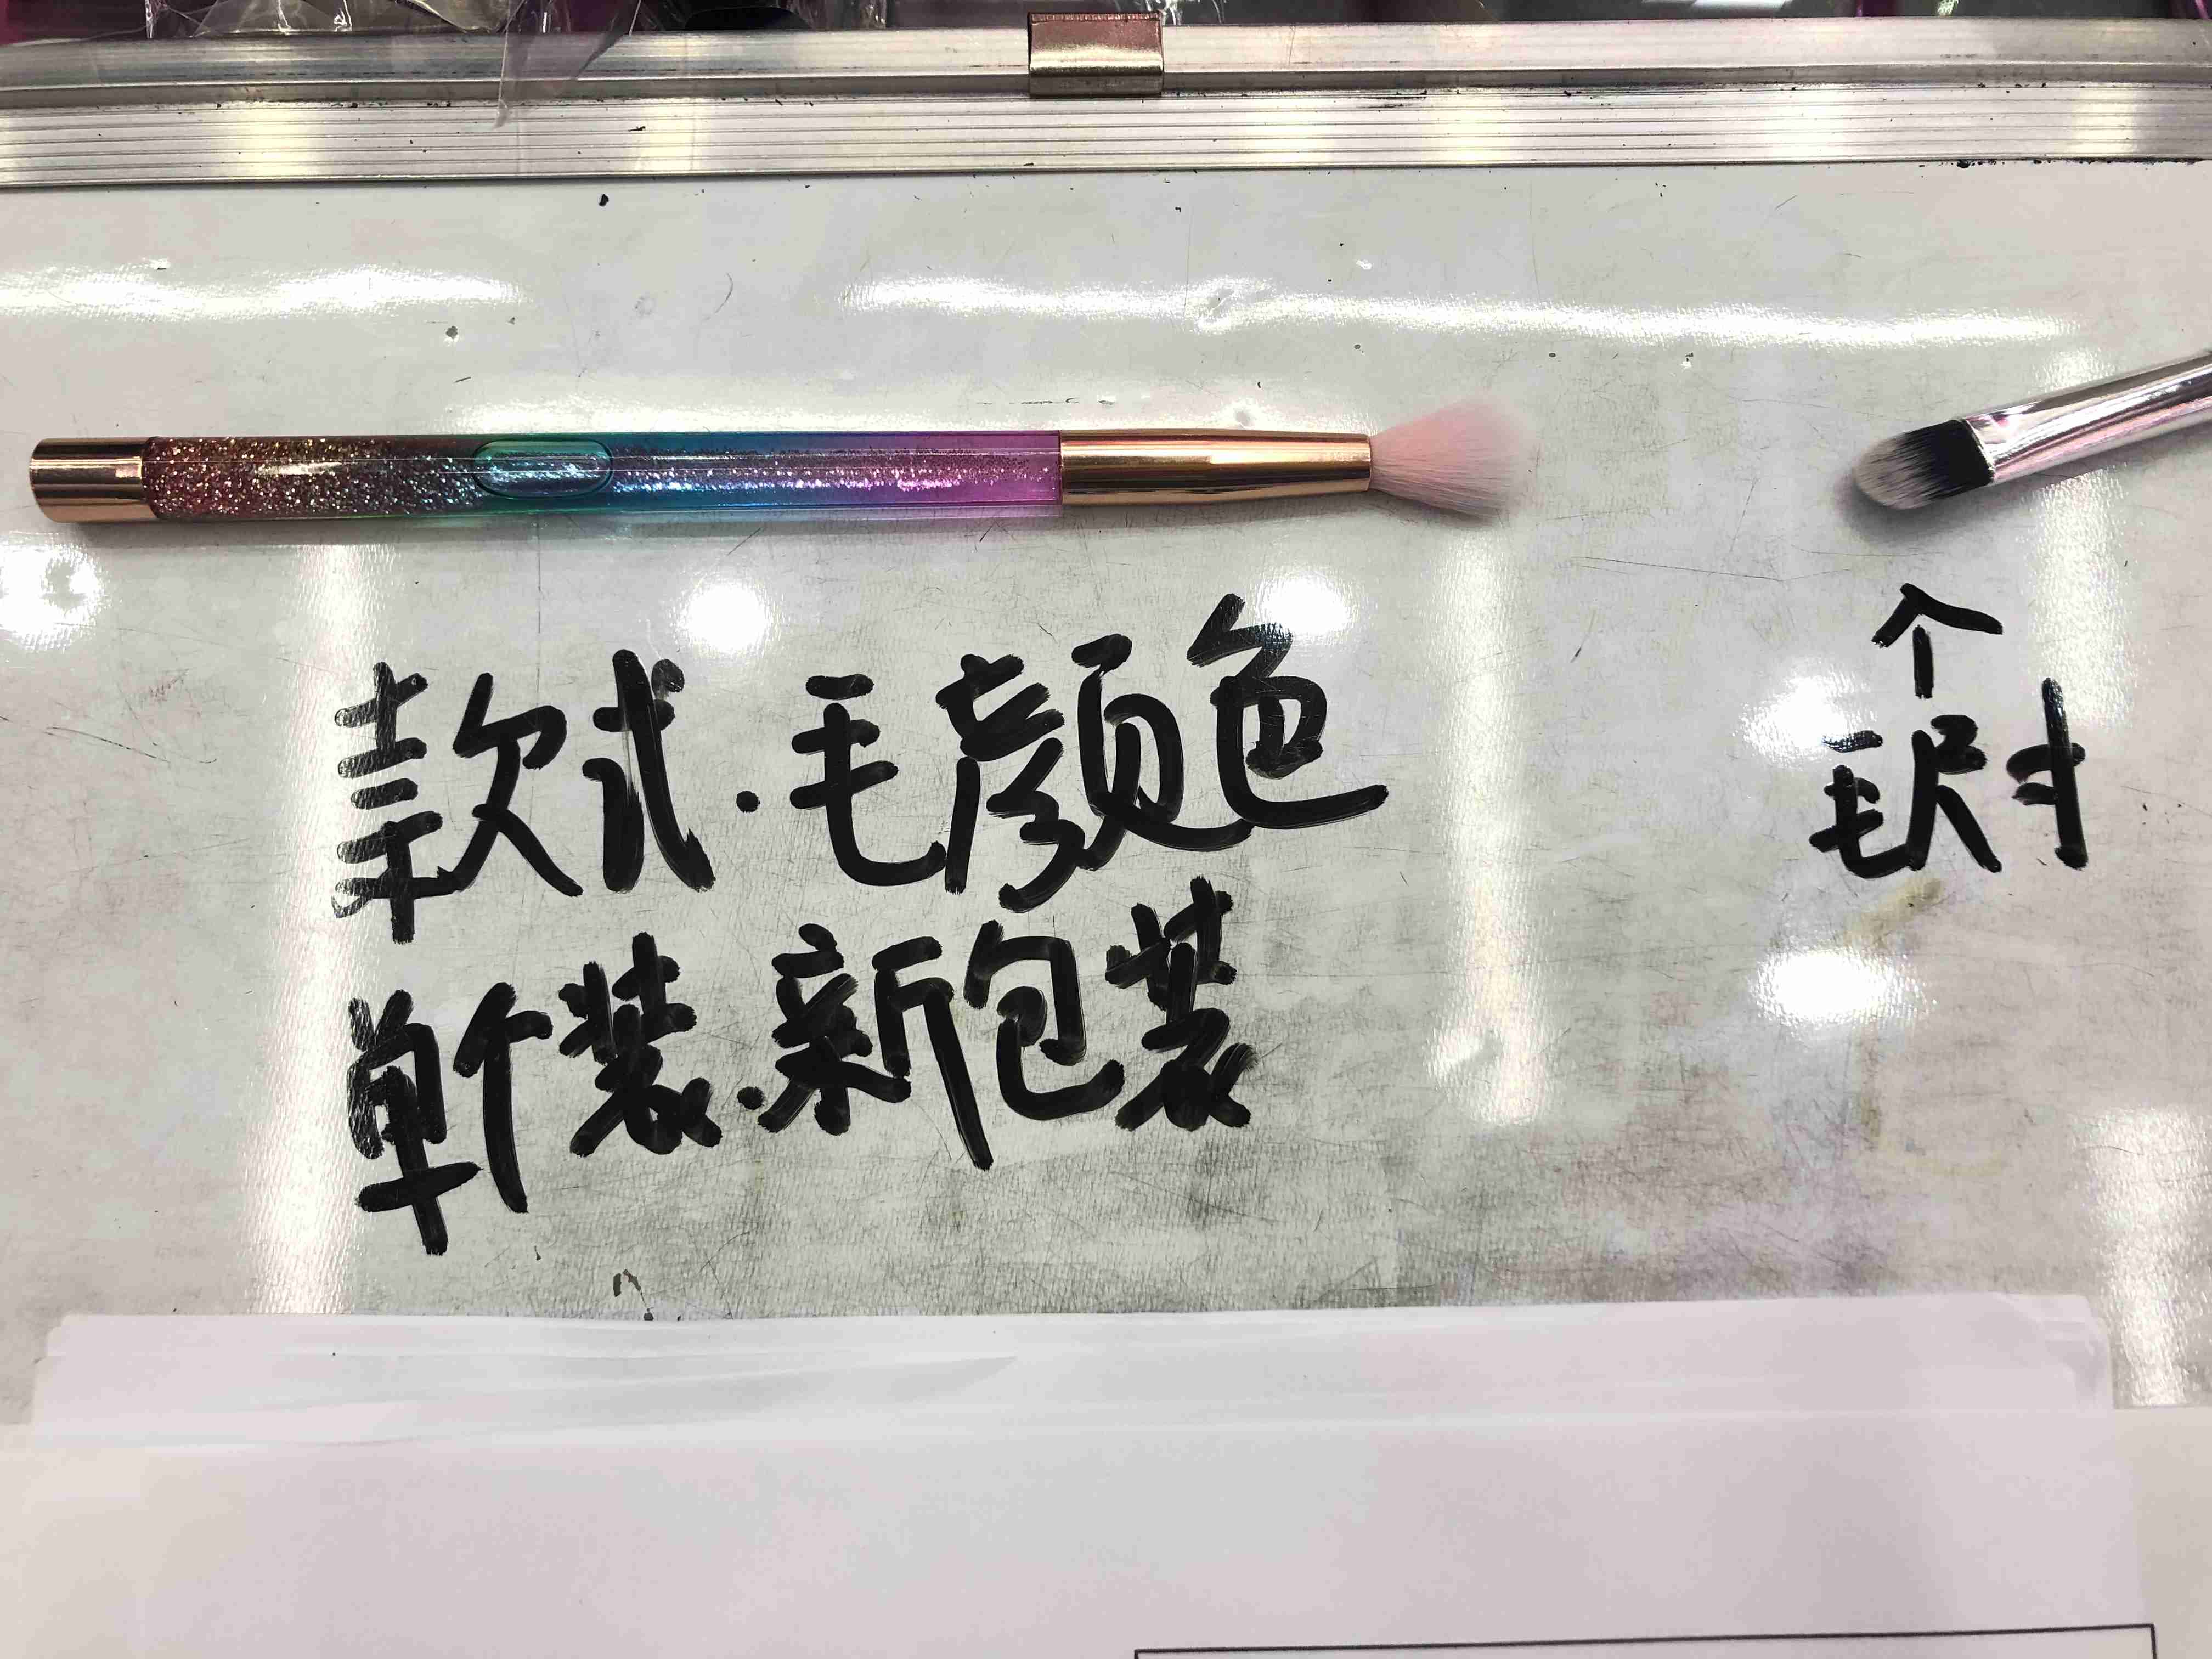 款式·毛颜色
单个装·新包装
↑
毛尺寸